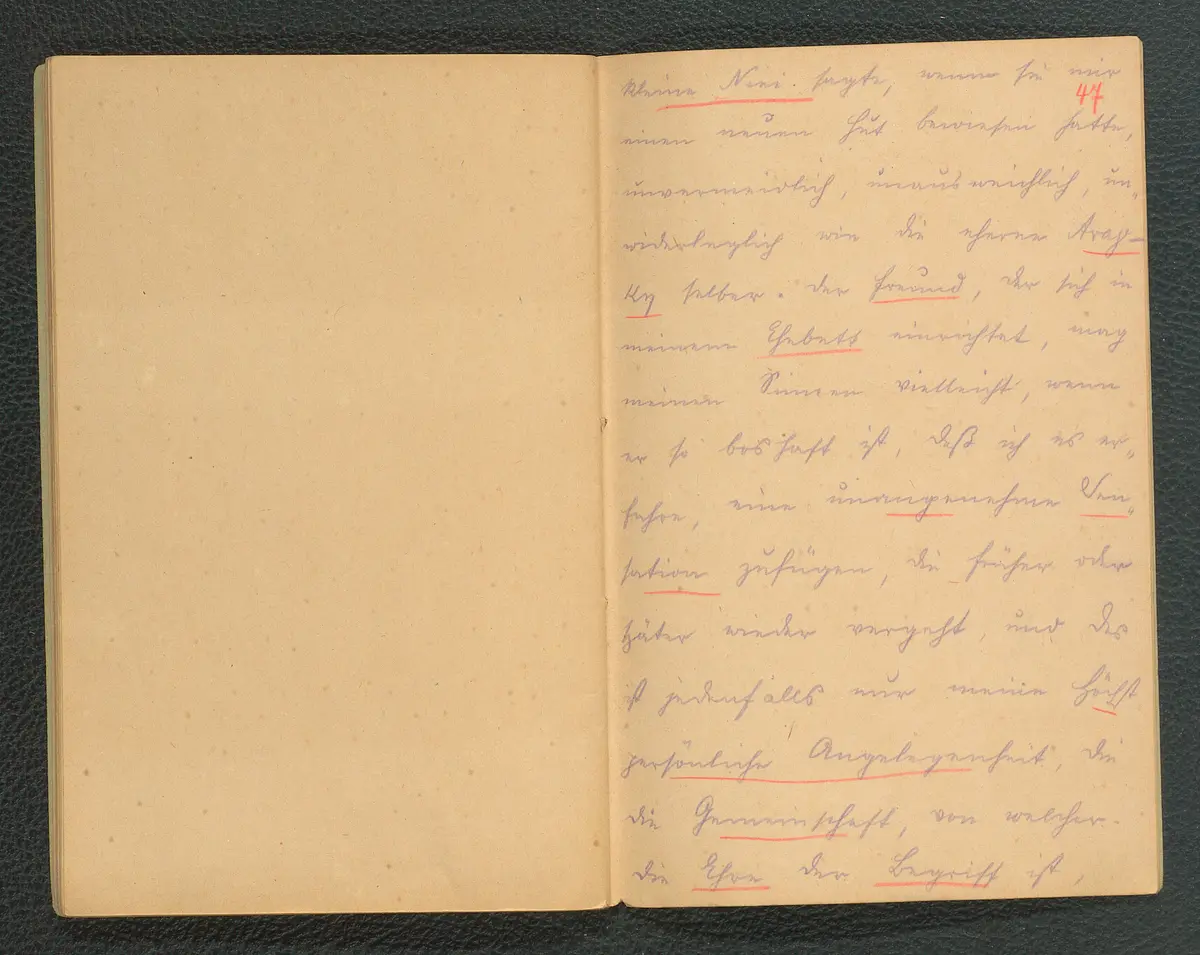 kleine Nini. sagte, wenn sie mir
47
einen neuen Hut bewiesen hatte,
unvermeidlich, unausweichlich, un„
widerleglich wie die eherne Anag-
ky selber. Der Freund, der sich in
meinem Ehebett einrichtet, mag
meinen Sinnen vielleicht, wenn
er so boshaft ist, daß ich es er„
fahre, eine unangenehme Sen„
sation zufügen, die früher oder
später wieder vergeht, und das
ist jedenfalls nur meine höchst
persönliche Angelegenheit, die
die Gemeinschaft, von welcher
die Ehre der Begriff ist,